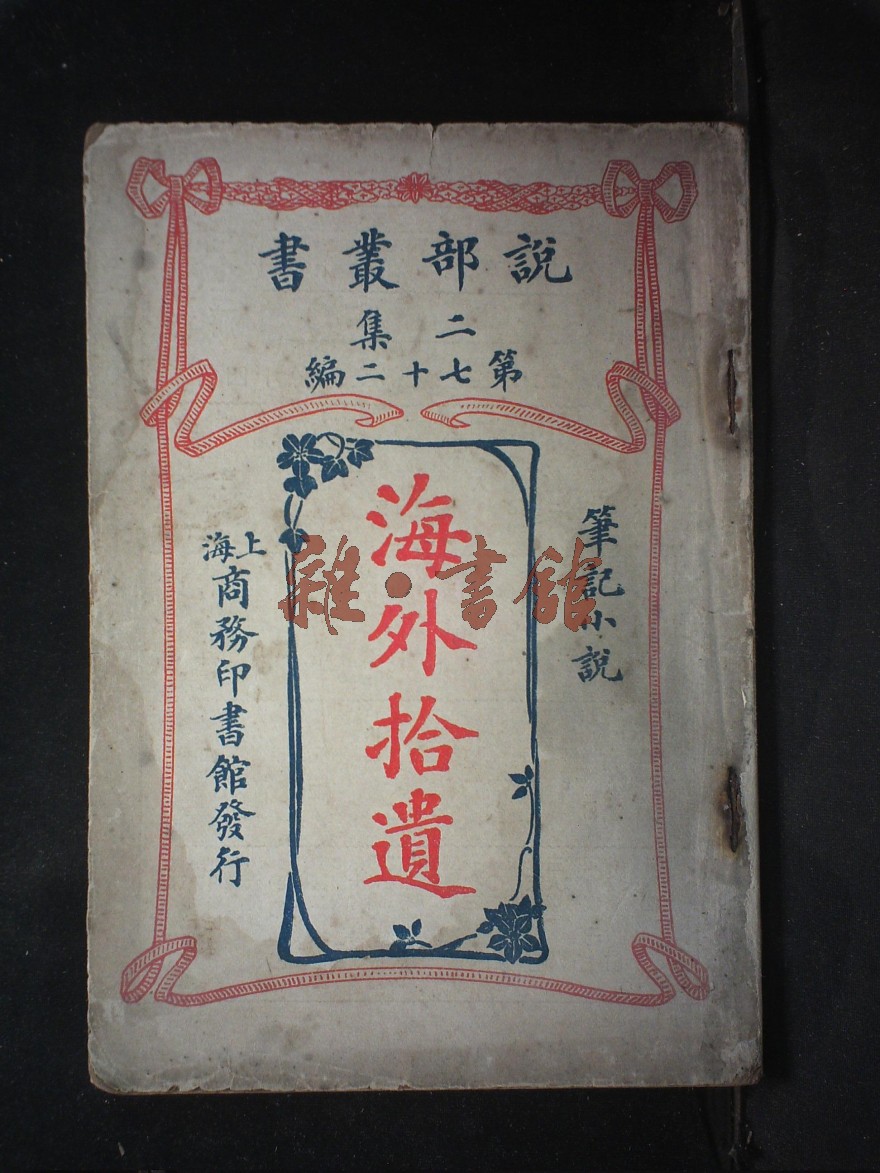 說部叢書
二集
第七十二編
筆記小說
海外拾遺
上海
商務印書館發行
雜·書館